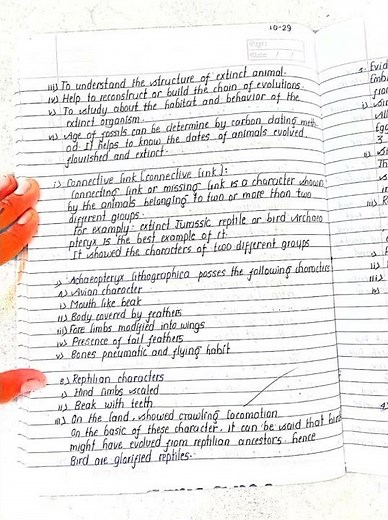 10-29
iii) To understand the structure of extinct animal.
iv) Help to reconstruct or build the chain of evolutions.
v) To study about the habitat and behavior of the
extinct organism.
vi) Age of fossils can be determine by carbon dating meth
od. It helps to know the dates of animals evolved,
flourished and extinct.
i) Connective link (connective link):
Connecting link or missing link is a character shown
by the animals belonging to two or more than two
different groups.
For example: extinct Jurassic reptile or bird Archaeo
pteryx is the best example of it.
It showed the characters of two different groups
Achaeopteryx lithographica posses the following characters
Avian character
i) Mouth like beak
ii) Body covered by feathers
iii) Fore limbs modified into wings
iv) Presence of tail feathers
v) Bones pneumatic and flying habit
Rephlian characters
i) Hind limbs scaled
ii) Beak with teeth
iii) On the land, showed crawling locomotion
On the basic of these character, it can be said that bird
might have evolved from rephlian ancestors. hence
Bird are glorified reptiles.